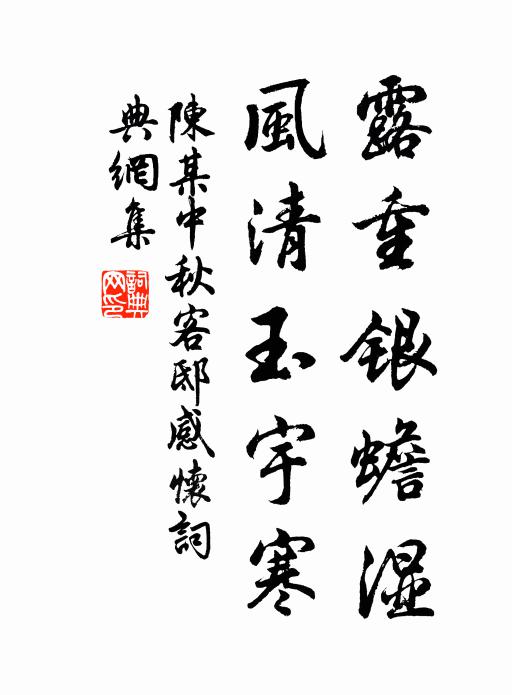 露重銀蟾湿
風清玉宇寒
陳某中秋客邸感懷詞
典網集
詞典网印